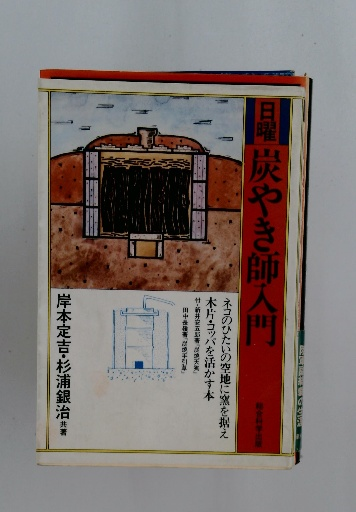 日曜
炭やき師入門
ネコのひたいの空地に窯を据え
木片・コッパを活かす本
岸本定吉・杉浦銀治 共著